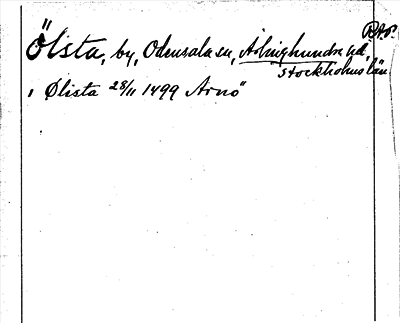 R.A.P.
Ölsta, by, Odensala sn, Ärlinghundra hd,
Stockholms län
i Ølista 28/11 1499 Arnö